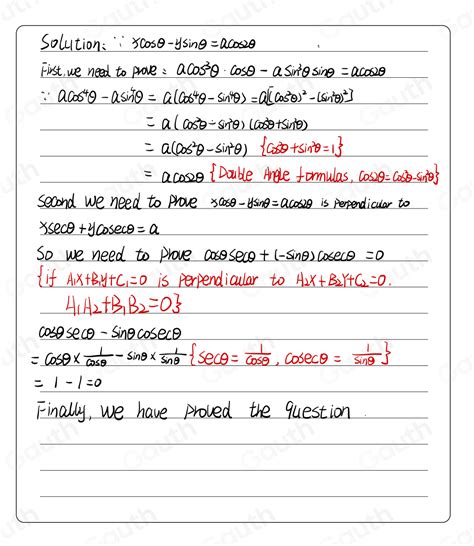 Solution: ∵ xcosθ-ysinθ=acos2θ
First, we need to prove: acos³θ·cosθ-asin³θsinθ=acos2θ
∵ acos⁴θ-asin⁴θ=a(cos⁴θ-sin⁴θ)=a[(cos²θ)²-(sin²θ)²]
=a(cos²θ-sin²θ)(cos²θ+sin²θ)
=a(cos²θ-sin²θ) {cos²θ+sin²θ=1}
=acos2θ {Double Angle formulas, cos2θ=cos²θ-sin²θ}
Second we need to prove xcosθ-ysinθ=acos2θ is perpendicular to
xsecθ+ycosecθ=a
So we need to prove cosθsecθ+(-sinθ)cosecθ=0
{if A₁X+B₁Y+C₁=0 is perpendicular to A₂X+B₂Y+C₂=0.
A₁A₂+B₁B₂=0}
cosθsecθ-sinθcosecθ
=cosθ×1/cosθ-sinθ×1/sinθ {secθ=1/cosθ, cosecθ=1/sinθ}
=1-1=0
Finally, we have proved the question.
Gauth